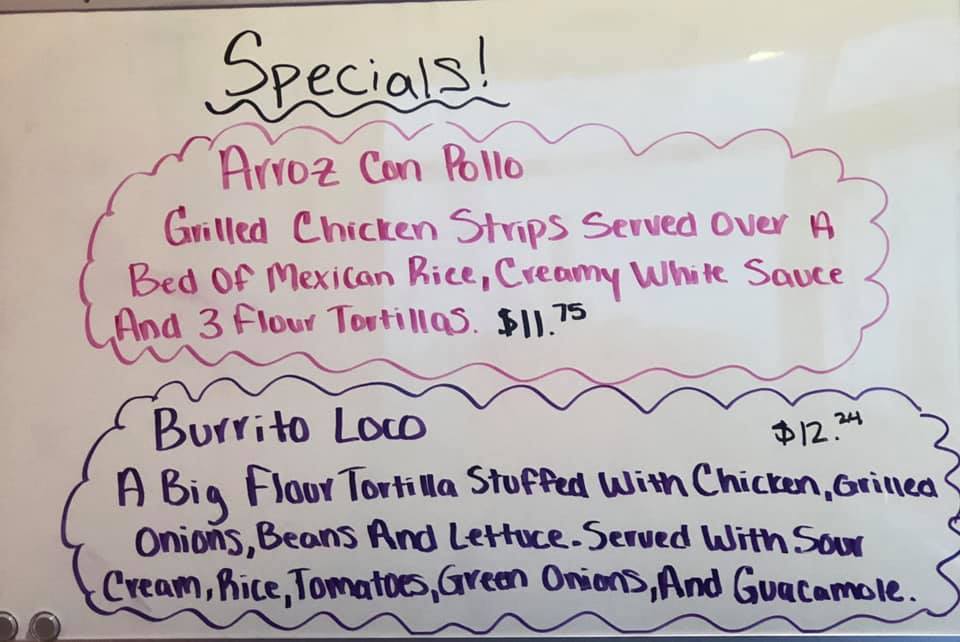 Specials!
Arroz Con Pollo
Grilled Chicken Strips Served Over A
Bed Of Mexican Rice, Creamy White Sauce
And 3 Flour Tortillas. $11.75
Burrito Loco $12.24
A Big Flour Tortilla Stuffed With Chicken, Grilled
Onions, Beans And Lettuce. Served With Sour
Cream, Rice, Tomatoes, Green Onions, And Guacamole.